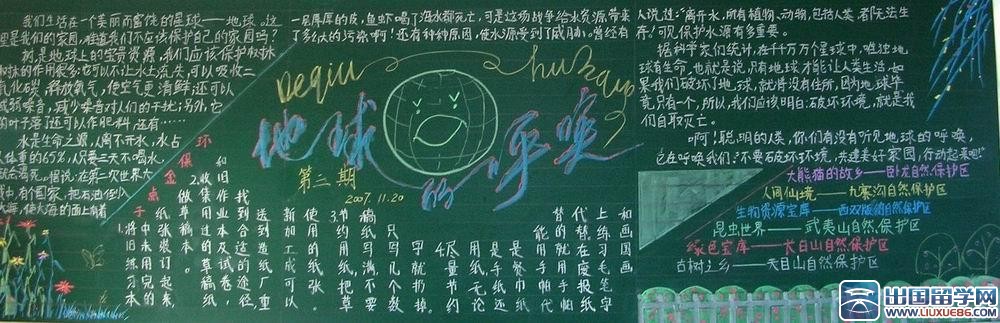 我们生活在一个美丽而富饶的星球——地球。这
里是我们的家园,难道我们不应该保护自己的家园吗?
树是地球上的宝贵资源,我们应该保护树林
树林的作用很多:它可以不让水土流失,可以吸收二
氧化碳,释放氧气,使空气更清鲜还可以
减弱噪音,减少噪音对人们的干扰;另外,它
的叶子落了还可以作肥料,还有……
水是生命之源,人离不开水,水占
人体重的65%,只要三天不喝水,
就会渴死。据说:在第二次世界大
战中,有个国家,把石油倒入
大海,使大海的面上有着
一层厚厚的皮,鱼虾喝了海水都死亡,可是这场战争给水资源带来
了多么大的污染啊!还有种种原因,使水源受到了威胁。曾经有
人说过:“离开水,所有植物、动物,包括人类,都无法生
存!”可见保护水源有多重要。
据科学家们统计,在千千万万个星球中,唯独地
球有生命,也就是说,只有地球才能让人类生活,如
果我们破坏了地球,就将没有住所,因为地球毕
竟只有一个,所以,我们应该明白:破坏环境,就是我
们自取灭亡。
啊!聪明的人类,你们有没有听见地球的呼唤,
它在呼唤我们:“不要破坏环境,共建美好家园,行动起来吧!”
Deqiu Huhuan
地球的呼唤
第二期
2007.11.20
环保金点子
1.将旧练习本
中未用完的
纸装订起来
做草稿纸。
2.收集用过的草稿纸
和旧作业本及试卷
我合到的这些纸重
新加工成可以
使用的纸张。
3.节约用纸,把草
稿纸写满,不要
只写几个字就扔掉。
4.尽量节约
用纸,无论
是餐巾纸还
是用手帕代
替的就用手帕
代替,在废报纸
上练习毛笔字
和画国画
大熊猫的故乡——卧龙自然保护区
人间仙境——九寨沟自然保护区
生物资源宝库——西双版纳自然保护区
昆虫世界——武夷山自然保护区
绿色宝库——长白山自然保护区
古树之乡——天目山自然保护区
出国留学网
WWW.LIUXUE86.COM